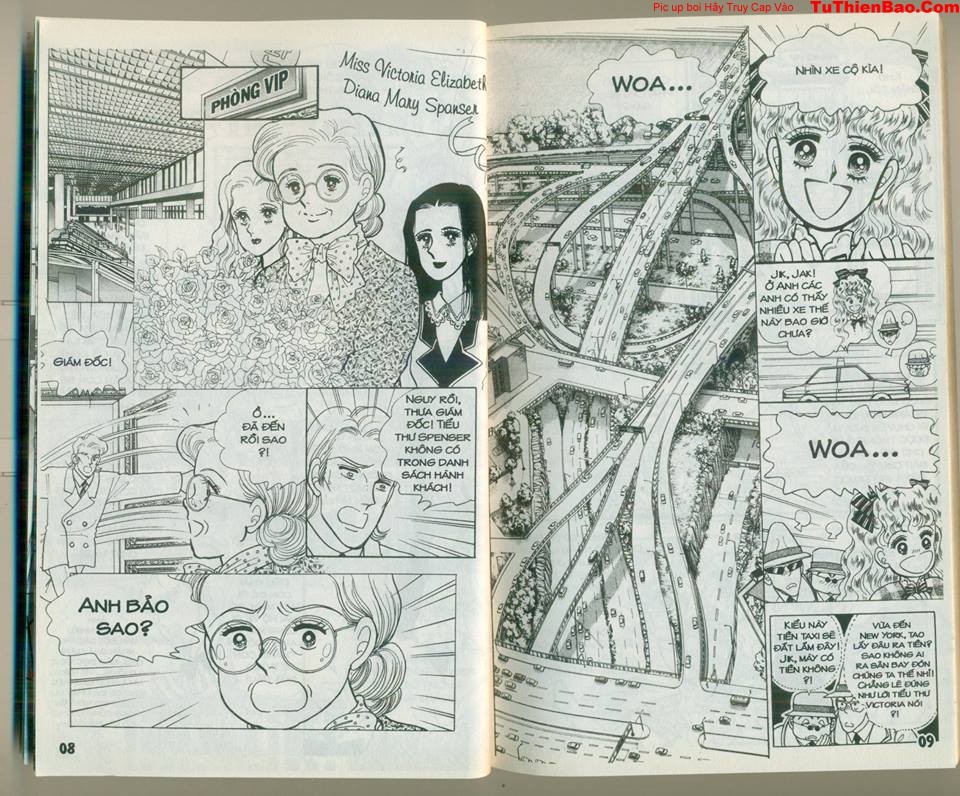 Pic up boi Hãy Truy Cap Vào TuThienBao.Com
PHÒNG VIP
Miss Victoria Elizabeth
Diana Mary Spanser
GIÁM ĐỐC!
Ơ...
ĐÃ ĐẾN
RỒI SAO
?!
NGUY RỒI,
THƯA GIÁM
ĐỐC! TIỂU
THƯ SPENSER
KHÔNG CÓ
TRONG DANH
SÁCH HÀNH
KHÁCH!
ANH BẢO
SAO?
08
WOA...
NHÌN XE CỘ KÌA!
JIK, JAK!
Ở ANH CÁC
ANH CÓ THẤY
NHIỀU XE THẾ
NÀY BAO GIỜ
CHƯA?
WOA...
KIỂU NÀY
TIỀN TAXI SẼ
ĐẮT LẮM ĐÂY!
JIK, MÀY CÓ
TIỀN KHÔNG
?!
VỪA ĐẾN
NEW YORK, TAO
LẤY ĐÂU RA TIỀN?
SAO KHÔNG AI
RA SÂN BAY ĐÓN
CHÚNG TA THẾ NHỈ!
CHẲNG LẼ ĐÚNG
NHƯ LỜI TIỂU THƯ
VICTORIA NÓI
?!
09